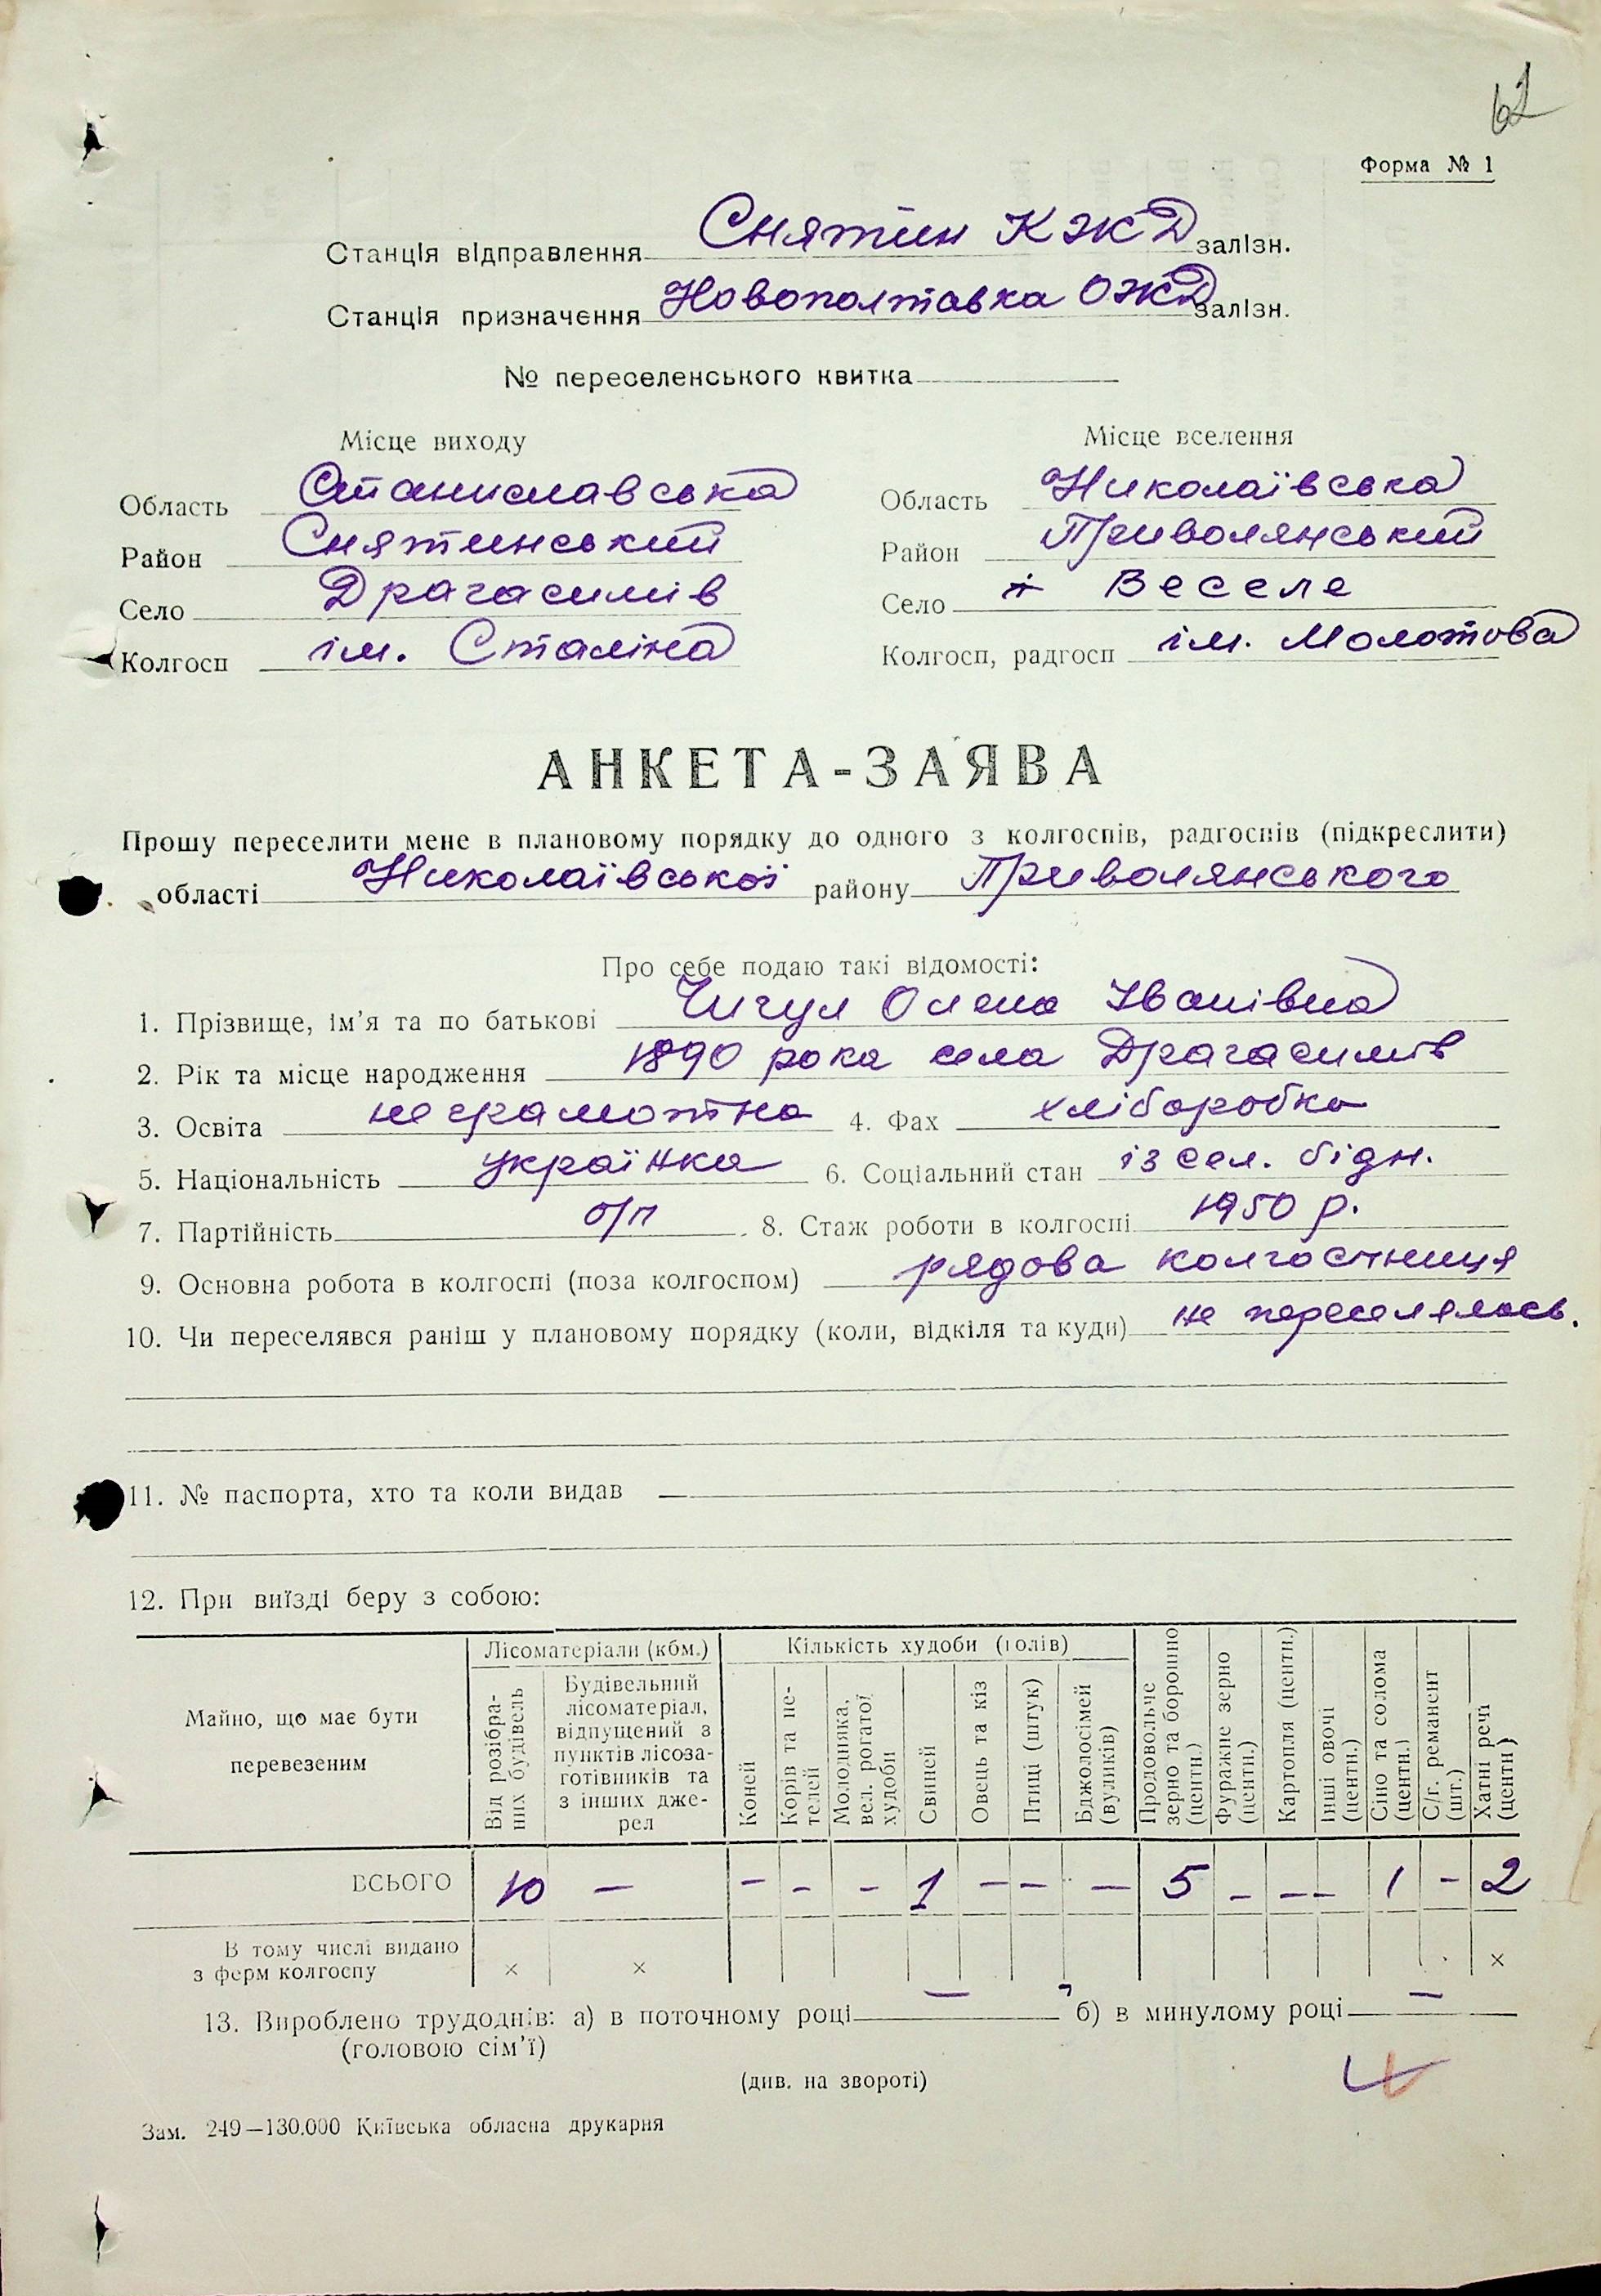 62
Форма № 1
Станція відправлення Снятин КЖД залізн.
Станція призначення Новополтавка ОЖД залізн.
№ переселенського квитка
Місце виходу
Область Станиславська
Район Снятинський
Село Драгасимів
Колгосп ім. Сталіна
Місце вселення
Область Николаївська
Район Приволянський
Село Веселе
Колгосп, радгосп ім. Молотова
АНКЕТА-ЗАЯВА
Прошу переселити мене в плановому порядку до одного з колгоспів, радгоспів (підкреслити)
області Николаївської району Приволянського
Про себе подаю такі відомості:
1. Прізвище, ім'я та по батькові Чигул Олена Іванівна
2. Рік та місце народження 1890 рока села Драгасимів
3. Освіта неграмотна 4. Фах хліборобка
5. Національність українка 6. Соціальний стан із сел. бідн.
7. Партійність б/п 8. Стаж роботи в колгоспі 1950 р.
9. Основна робота в колгоспі (поза колгоспом) рядова колгоспниця
10. Чи переселявся раніш у плановому порядку (коли, відкіля та куди) не переселялась.
11. № паспорта, хто та коли видав
12. При виїзді беру з собою:
Майно, що має бути перевезеним
Лісоматеріали (кбм.)
Від розібраних будівель
Будівельний лісоматеріал, відпущений з пунктів лісозаготівників та з інших джерел
Кількість худоби (голів)
Коней
Корів та нетелей
Молодняка, вел. рогатої худоби
Свиней
Овець та кіз
Птиці (штук)
Бджолосімей (вуликів)
Продовольче зерно та борошно (центн.)
Фуражне зерно (центн.)
Картопля (центн.)
Інші овочі (центн.)
Сіно та солома (центн.)
С/г. реманент (шт.)
Хатні речі (центн)
ВСЬОГО 10 — – – – 1 – – — 5 – – – 1 – 2
В тому числі видано з ферм колгоспу × × ×
13. Вироблено трудоднів: а) в поточному році — б) в минулому році —
(головою сім'ї)
(див. на звороті)
Зам. 249—130.000 Київська обласна друкарня